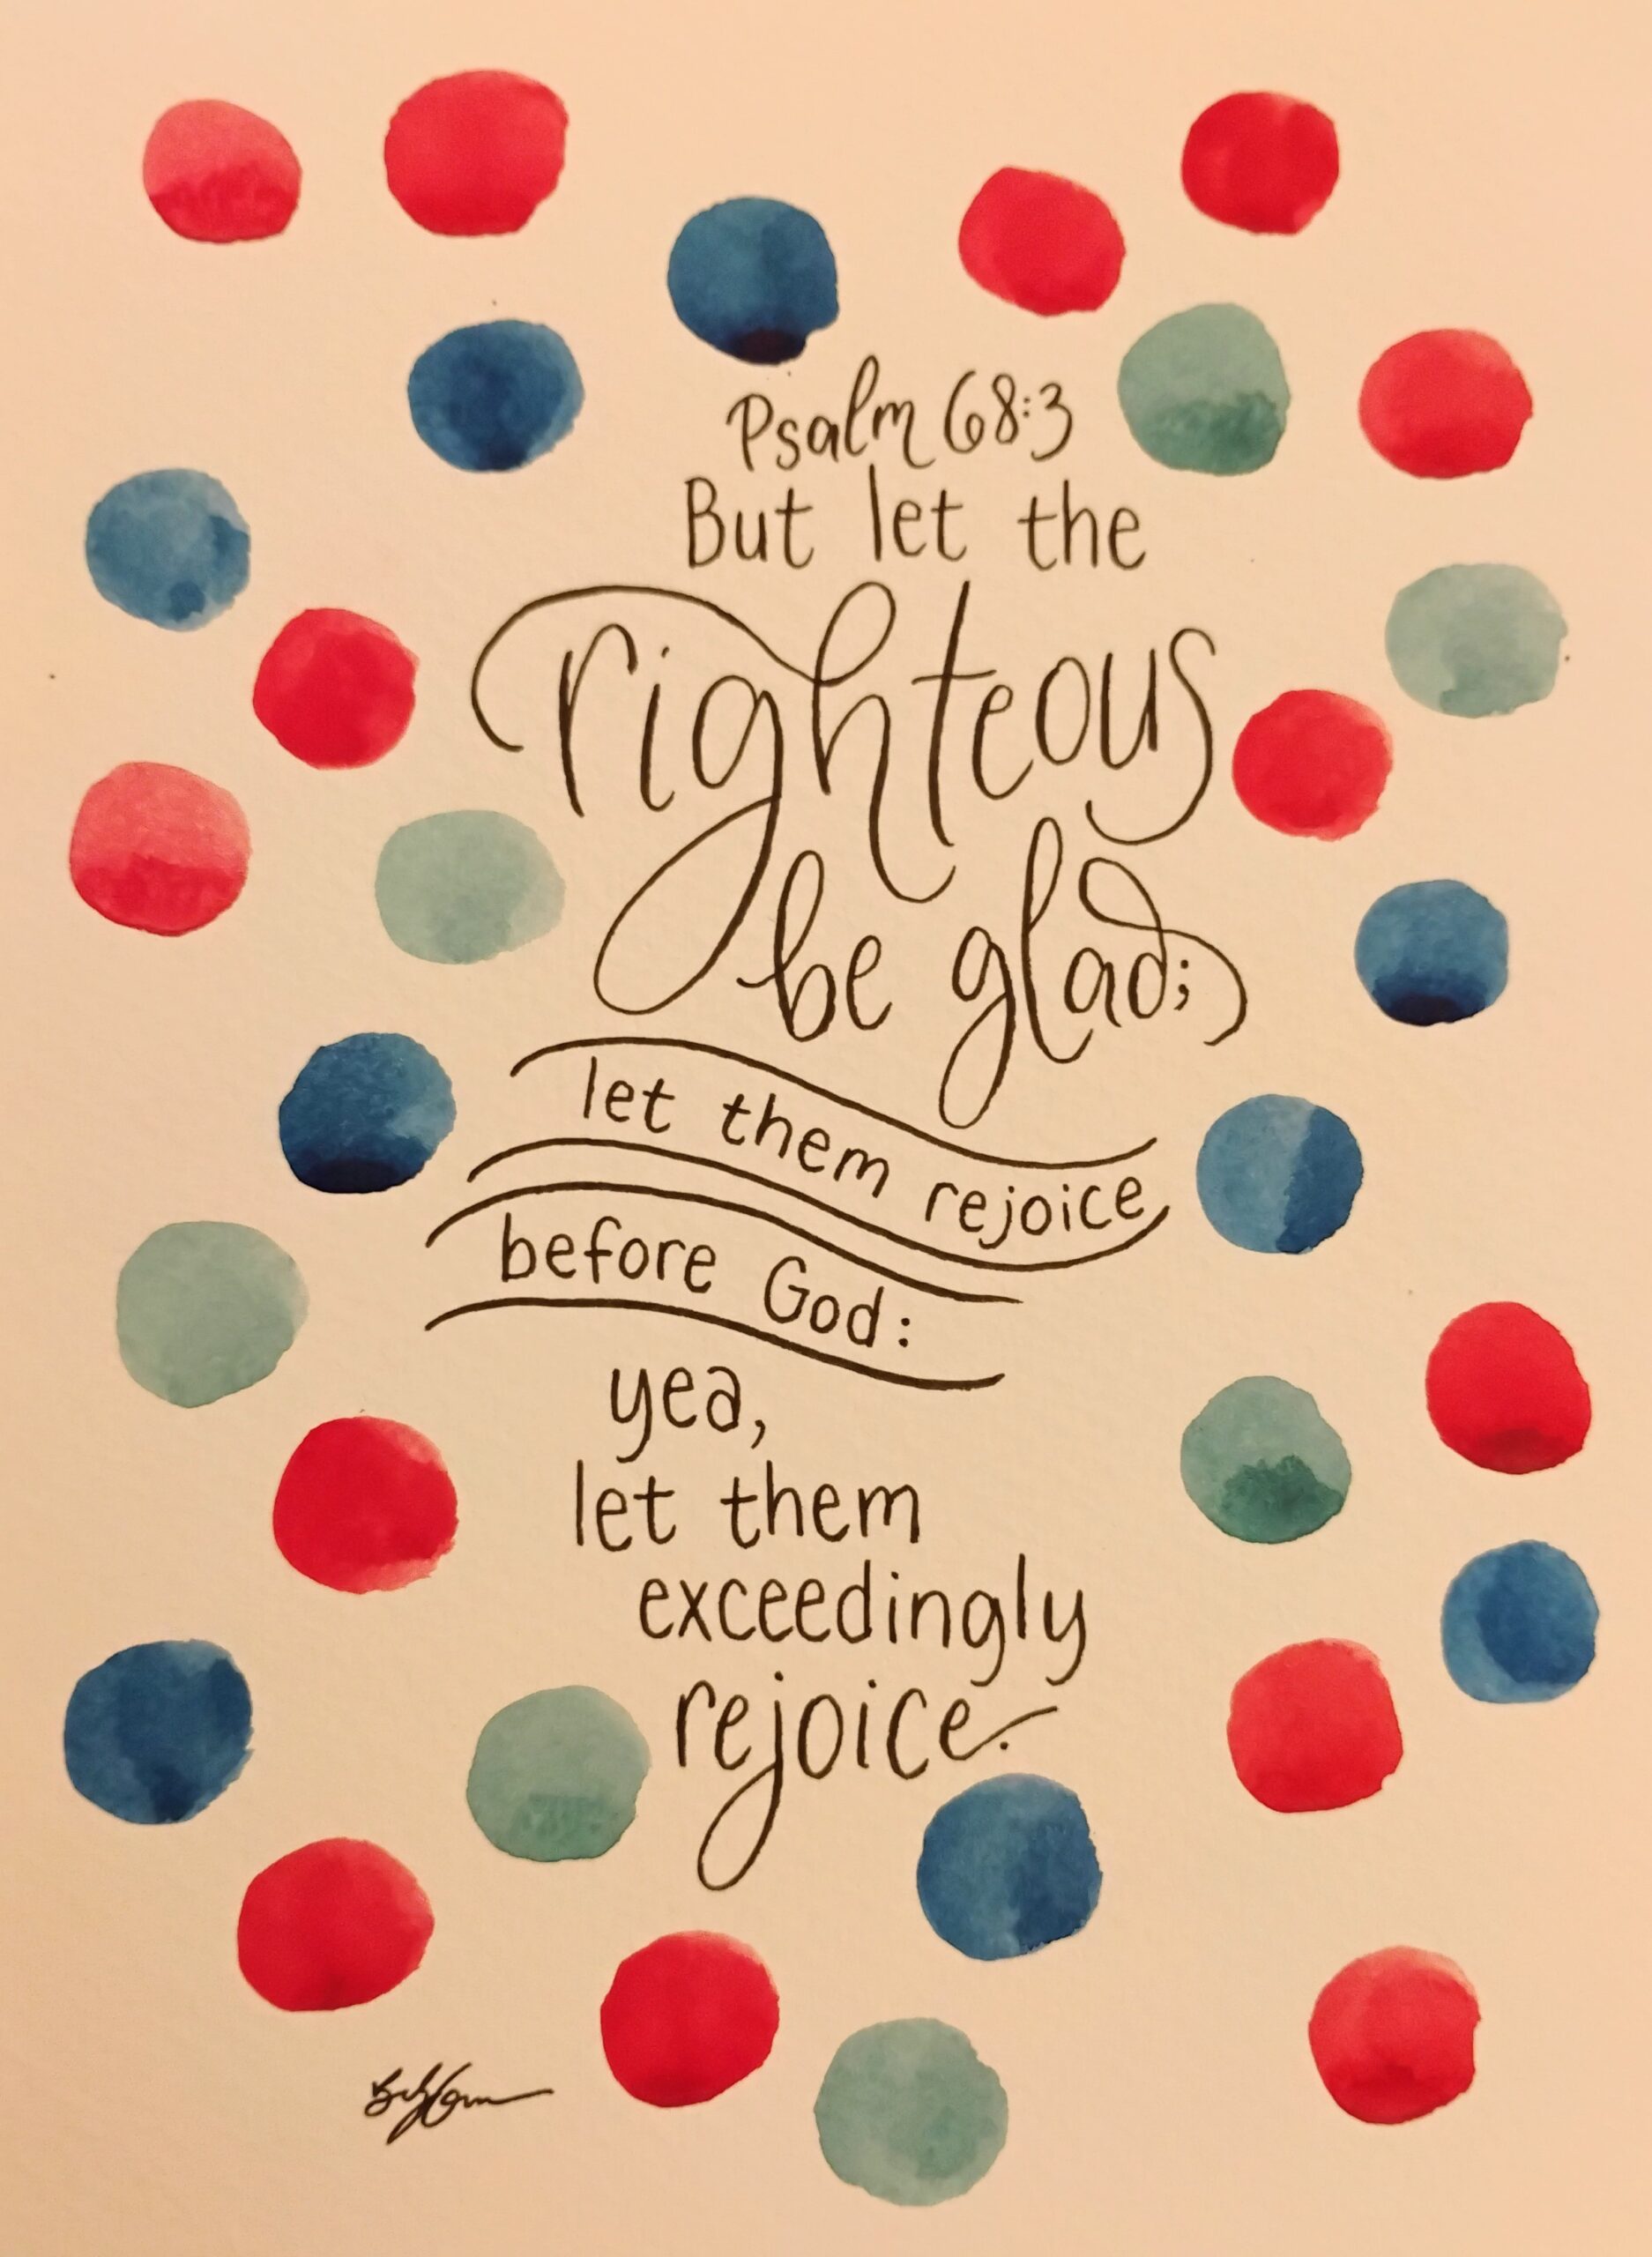 Psalm 68:3
But let the
righteous
be glad;
let them rejoice
before God:
yea,
let them
exceedingly
rejoice.